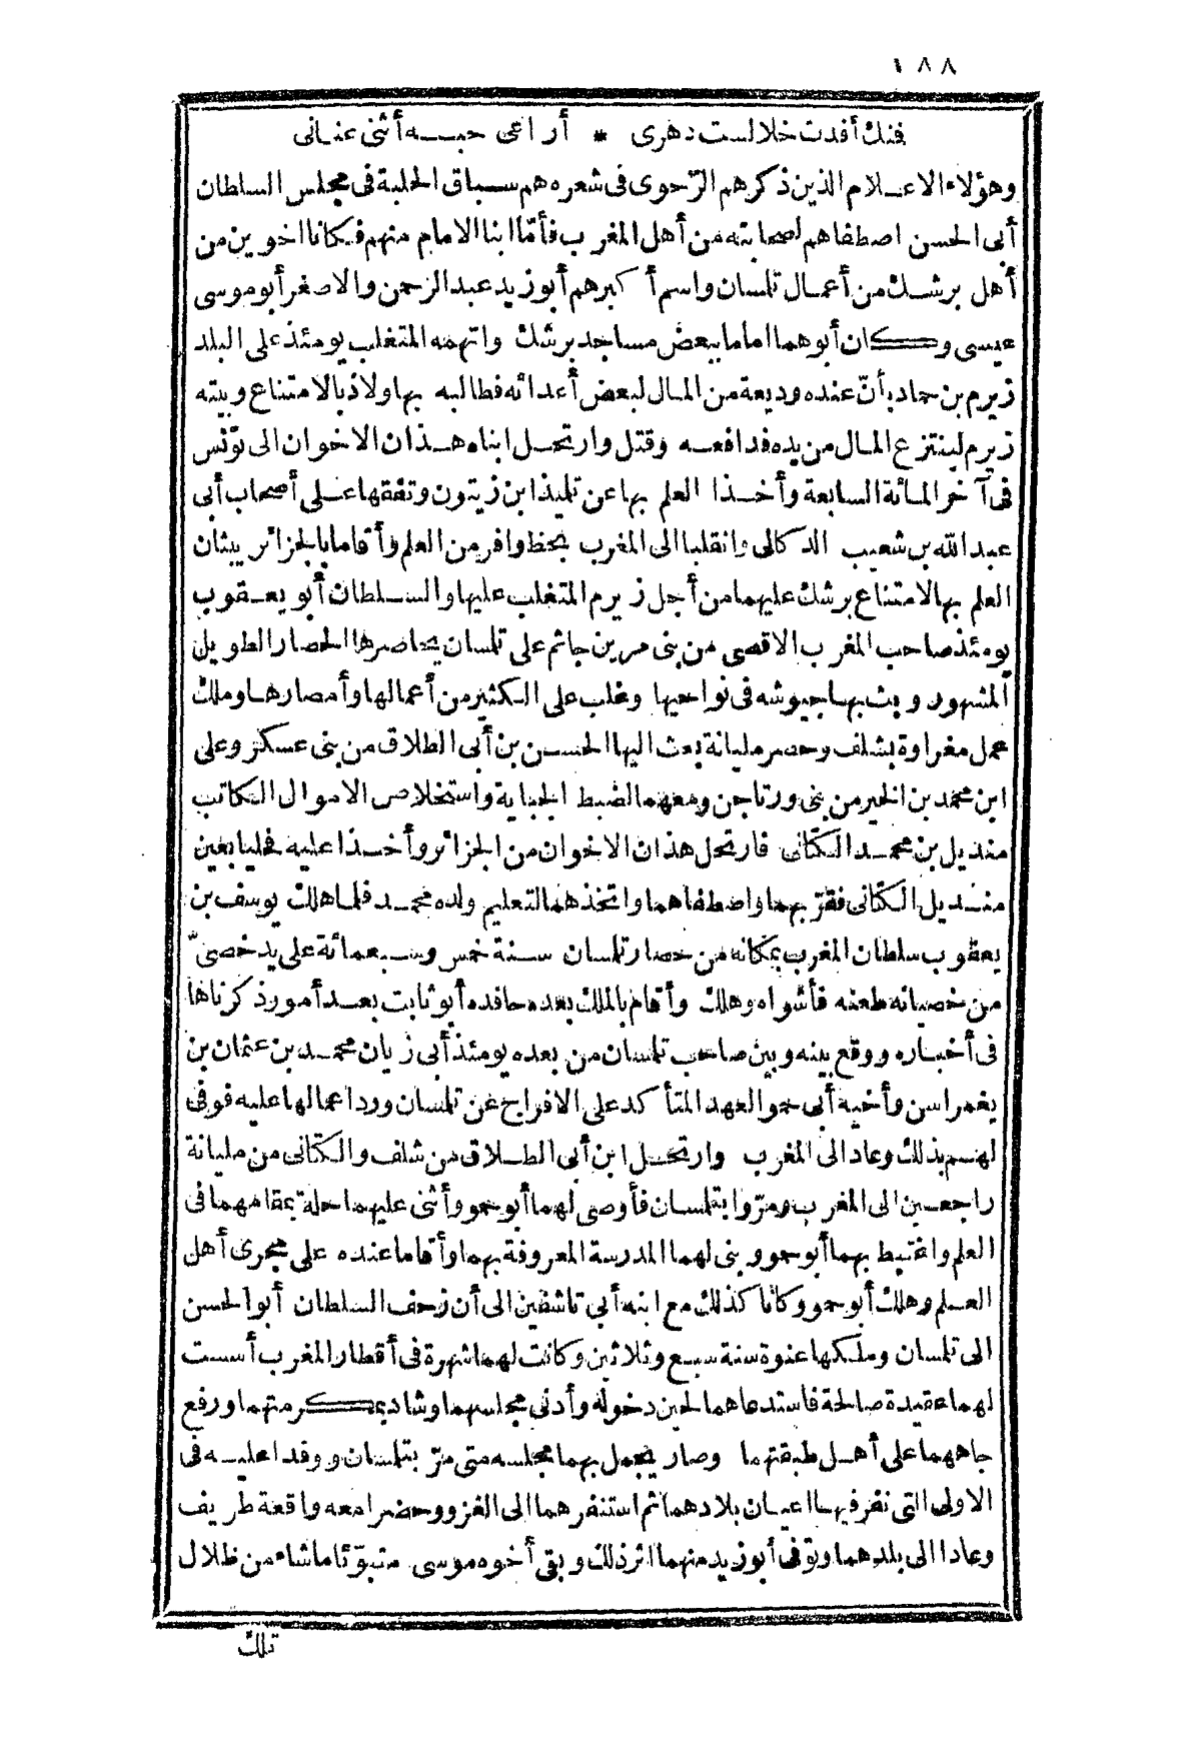 ١٨٨
فنك أفدت خلالست دهرى * أراعى حبه أثنى عنانى
وهؤلاء الاعلام الذين ذكرهم الرّحوى فى شعره هم سباق الحلبة فى مجلس السلطان
أبى الحسن اصطفاهم لصحابته من أهل المغرب فأمّا ابنا الامام منهم فكانا اخوين من
أهل برشك من أعمال تلمسان واسم أكبرهم أبو زيد عبد الرحمن والاصغر أبو موسى
عيسى وكان أبوهما اماما ببعض مساجد برشك واتهمه المتغلب يومئذ على البلد
زيرم بن حماد بأنّ عنده وديعة من المال لبعض أعدائه فطالبه بها ولاذ بالامتناع وبيته
زيرم لينتزع المال من يده فدافعه وقتل وارتحل ابناه هذان الاخوان الى تونس
فى آخر المائة السابعة وأخذا العلم بها عن تليذ ابن زيتون وتفقها على أصحاب أبى
عبد الله بن شعيب الدكالى وانقلبا الى المغرب بحظ وافر من العلم وأقاما بالجزائر يبثان
العلم بها لامتناع برشك عليهما من أجل زيرم المتغلب عليها والسلطان أبو يعقوب
يومئذ صاحب المغرب الاقصى من بنى مرين جاثم على تلمسان يحاصرها الحصار الطويل
المشهور وبث بها جيوشه فى نواحيها وغلب على الكثير من أعمالها وأمصارها وملك
عمل مغراوة بشلف وحصر مليانة بعث اليها الحسن بن أبى الطلاق من بنى عسكر وعلى
ابن محمد بن الخير من بنى ورتاجن ومعهما لضبط الجباية واستخلاص الاموال الكاتب
منديل بن محمد الكتّانى فارتحل هذان الاخوان من الجزائر وأخذا عليه فحليا بعين
منديل الكتّانى فقرّبهما واصطفاهما واتخذهما لتعليم ولده محمد فلما هلك يوسف بن
يعقوب سلطان المغرب بمكانه من حصار تلمسان سنة خمس وسبعمائة على يد خصىّ
من خصيانه طعنه فأشواه وهلك وأقام بالملك بعده حافده أبو ثابت بعد أمور ذكرناها
فى أخباره ووقع بينه وبين صاحب تلمسان من بعده يومئذ أبى زيان محمد بن عثمان بن
يغمراسن وأخيه أبى حمو العهد المتأكد على الافراج عن تلمسان ورد اعمالها عليه فوفى
لهم بذلك وعاد الى المغرب وارتحل ابن أبى الطلاق من شلف والكتانى من مليانة
راجعين الى المغرب ومرّوا بتلمسان فأوصى لهما أبو حمو وأثنى عليهما حلة بمقامهما فى
العلم واغتبط بهما أبو حمو وبنى لهما المدرسة المعروفة بهما وأقاما عنده على مجرى أهل
العلم وهلك أبو حمو وكانا كذلك مع ابنه أبى تاشفين الى أن زحف السلطان أبو الحسن
الى تلمسان وملكها عنوة سنة سبع وثلاثين وكانت لهما شهرة فى أقطار المغرب أسست
لهما عقيدة صالحة فاستدعاهما لحين دخوله وأدنى مجلسهما وشاد بمكرمتهما ورفع
جاههما على أهل طبقتهما وصار يجمل بهما مجلسه متى مرّ بتلمسان ووفدا عليه فى
الاولى التى نفر فيها اعيان بلادهما ثم استنفرهما الى الغزو وحضرا معه واقعة طريف
وعادا الى بلدهما وتوفى أبو زيد منهما اثر ذلك وبقى أخوه موسى متبوّئا ما شاء من ظلال
تلك